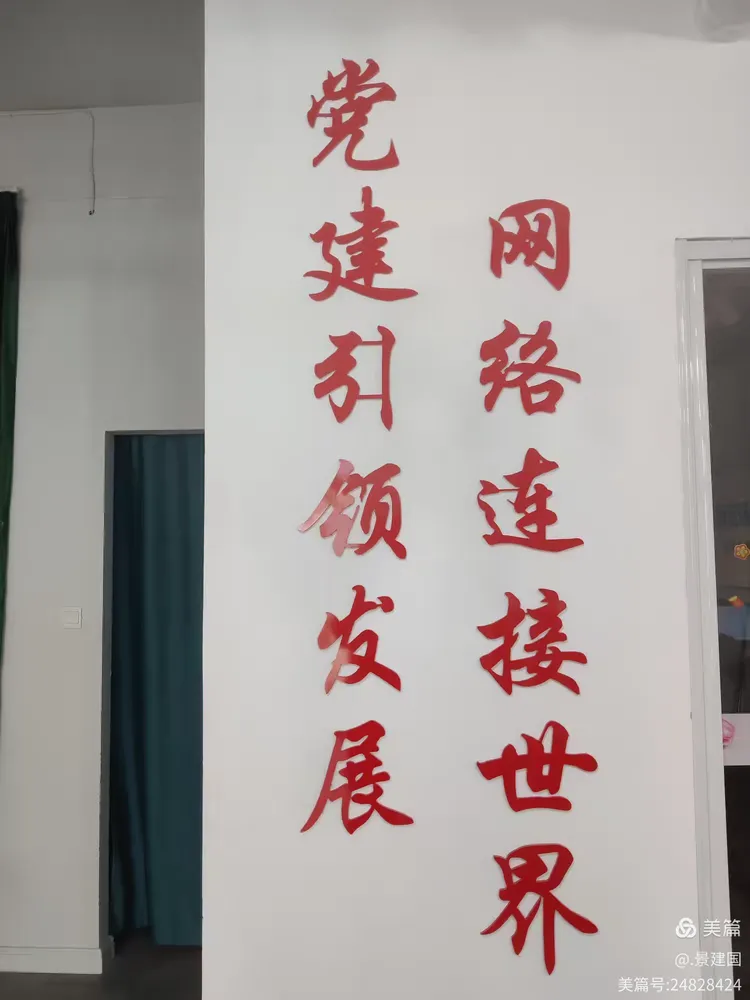 党建引领发展
网络连接世界
美篇
@.景建国
美篇号:24828424